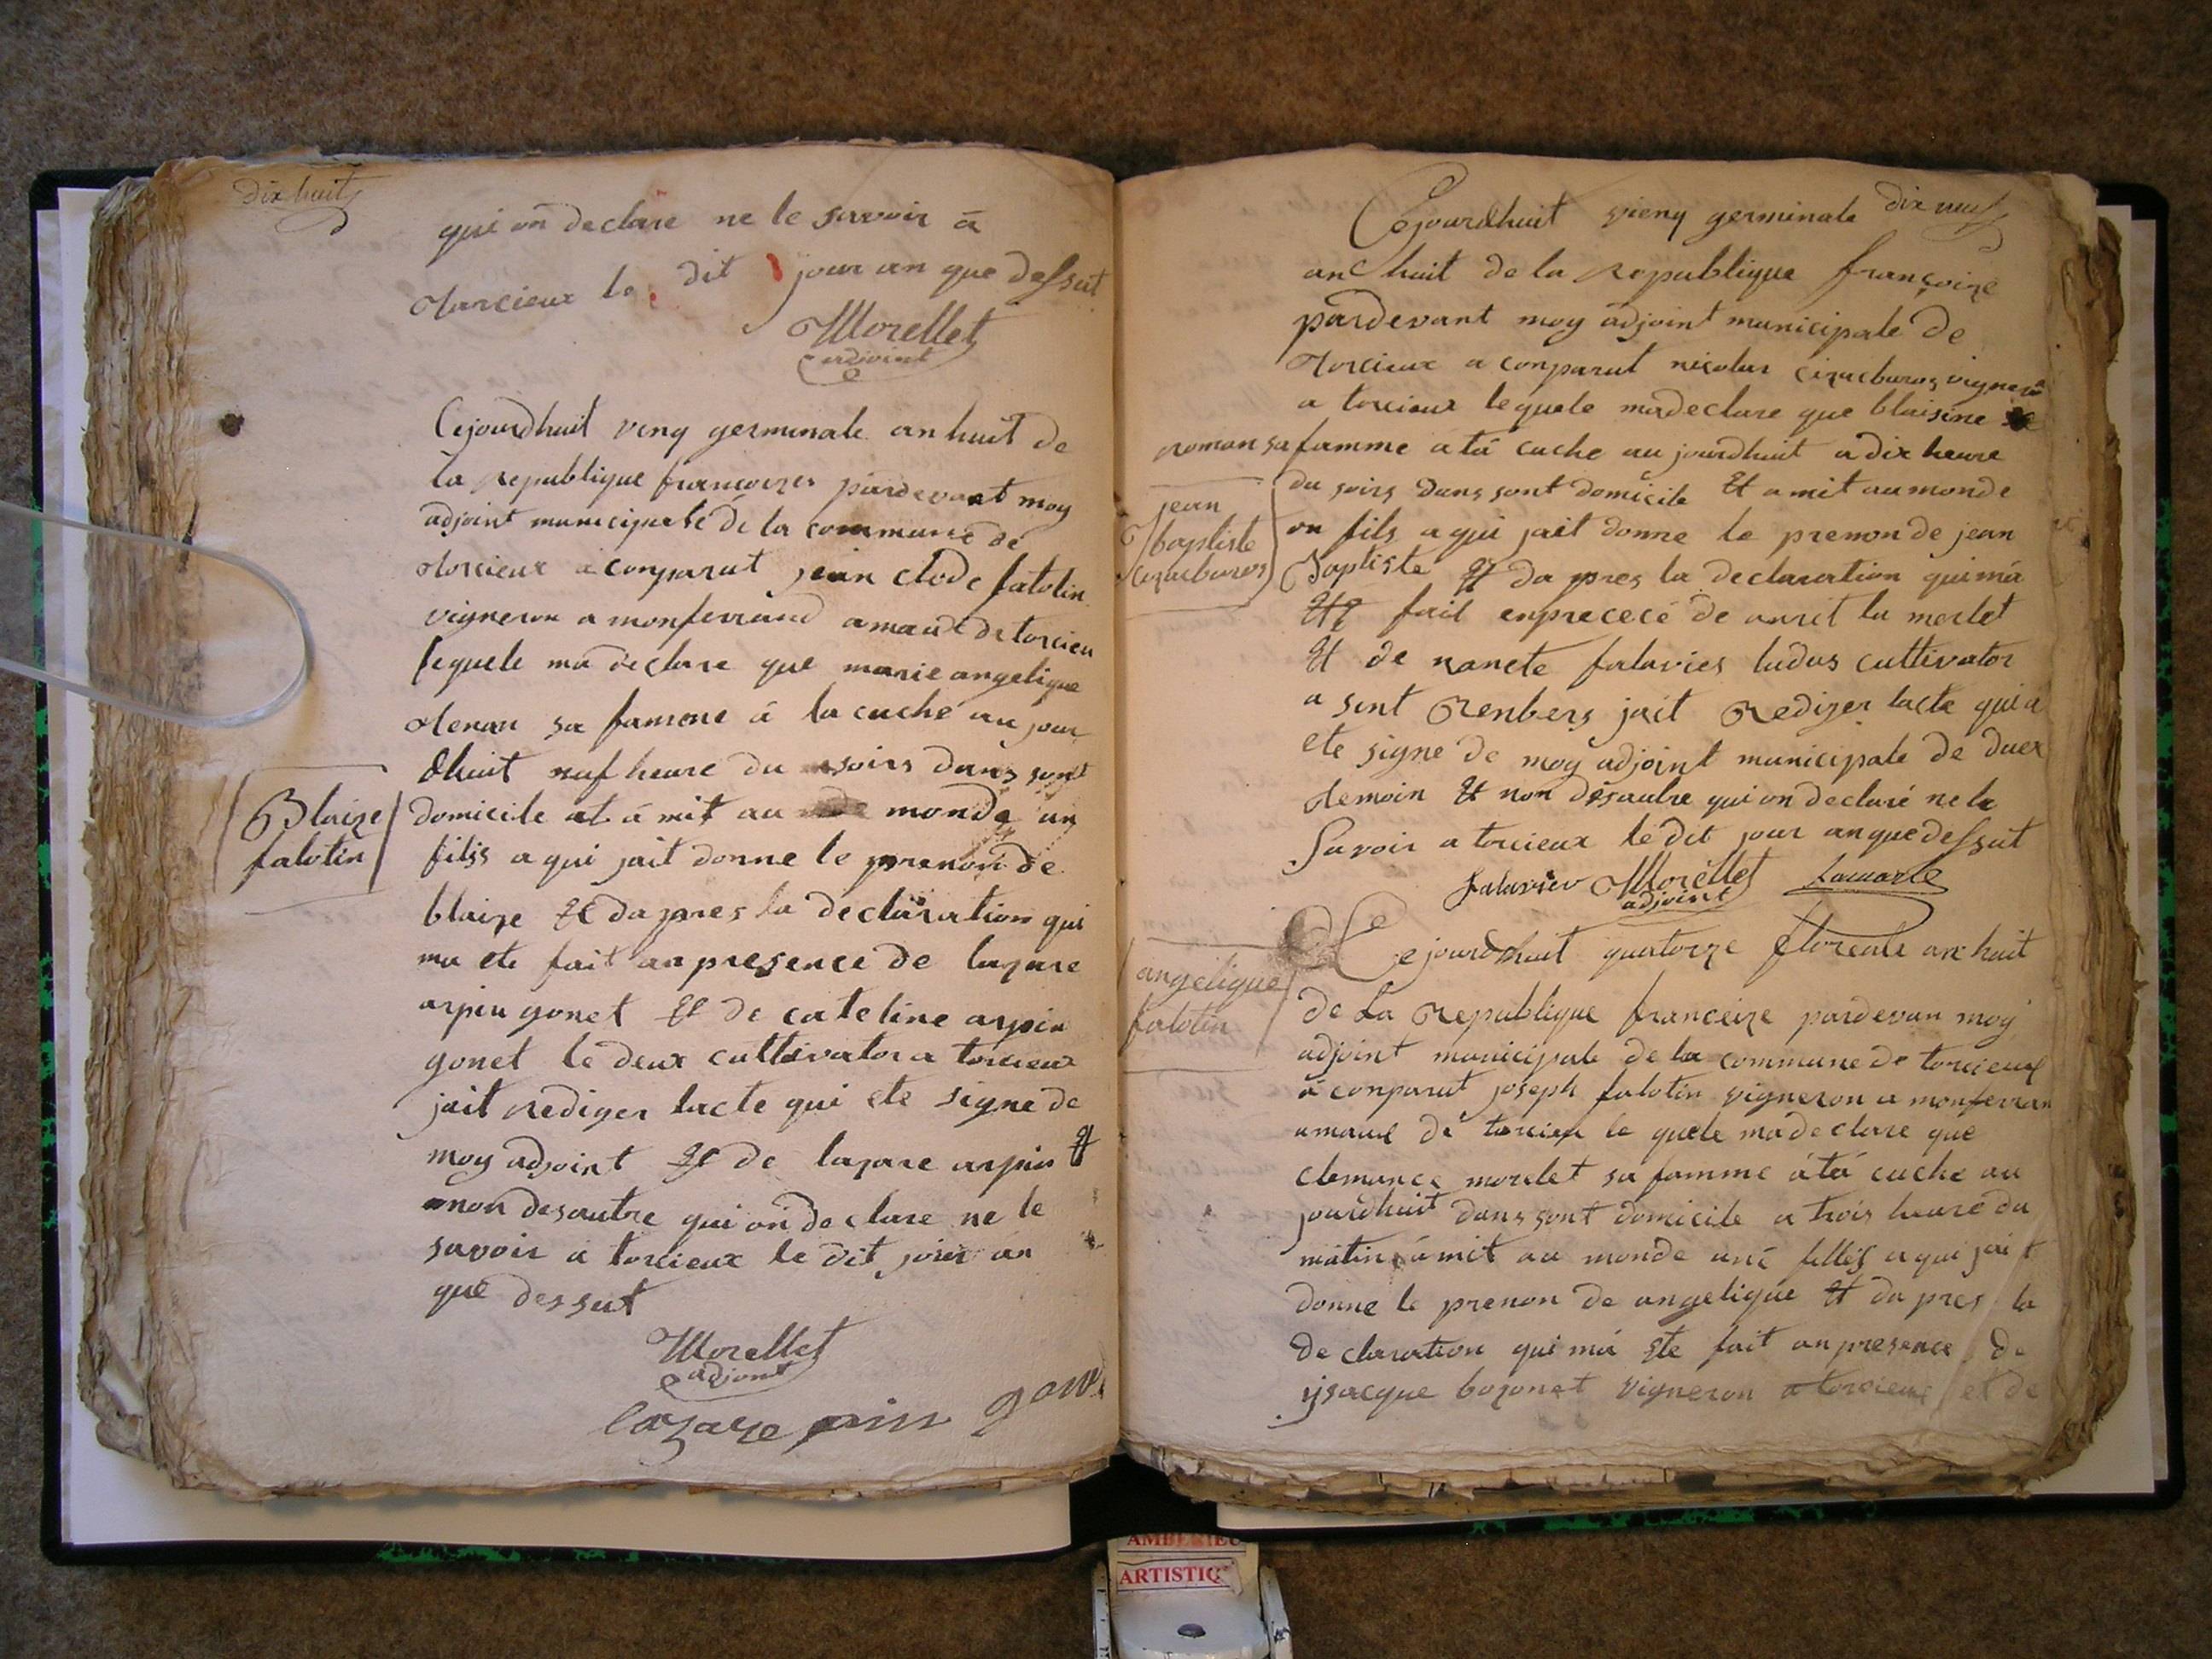 dix huit
qui on declare ne le savoir a
torcieux le dit jour an que dessut
Morellet
adjoint
Cejourdhuit veng germinale an huit de
la republique francoizes pardevant moy
adjoint municipale de la commune de
torcieux a conparut jean clode falotin
vigneron a monferrand amaud de torcieu
lequele ma declare que marie angelique
tenau sa famme á la cuché au jour
dhuit neuf heure du soirs dans sont
Blaize
falotin
domicile at á mit au monde un
filss a qui jait donne le prenon de
blaize et dapres la declaration qui
ma ete fait anpresence de lazare
arpin gonet et de cateline arpin
gonet le deux cultivator a torcieux
jait rediger lacte qui ete signe de
moy adjoint et de lazare arpin et
non desautre qui on declare ne le
savoir a torcieux le dit jour an
que dessut
Morellet
adjoint
lazare pin gon
dix neuf
Cejourdhuit vieng germinale
an huit de la republique françoize
pardevant moy adjoint municipale de
torcieux a conparut nicolas cizueburos vigneron
a torcieux lequele madeclare que blaisine
roman sa famme a tá cuche au jourdhuit a dix heure
du soirs dans sont domicile et a mit au monde
jean
baptiste
cizueburos
on fils a qui jait donne le prenon de jean
Baptiste et da pres la declaration quimá
ete fait enprececé de anrit la merlet
et de nancte falavies ludus cultivator
a sent renbers jait rediger lacte qui a
ete signe de moy adjoint municipale de duex
temoin et non désautre qui on declaré nele
savoir a torcieux le dit jour an que dessut
falavier Morellet Lamarle
adjoint
Ce jourdhuit quatorze floreale an huit
angelique
falotin
de La republique franceize pardevan moy
adjoint municipale de la commune de torcieux
a conparut joseph falotin vigneron a monferran
amaud de torcieu le quele madeclare que
clemance morelet sa famme átá cuche au
jourdhuit dans sont domicile a trois heure du
matin á mit au monde uné filles a qui jait
donne le prenon de angelique et da pres la
declaration qui má ete fait anpresence de
ijsacque bozonet vigneron a torcieux et de
AMBERIEU
ARTISTIQ